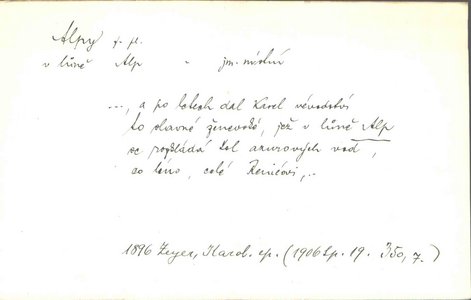 Alpy f. pl.
v lůně Alp „ jm. místní
..., a po letech dal Karel vévodství
to slavné ženevské, jež v lůně Alp
se rozkládá kol azurových vod,
co léno, celé Renieovi,..
1896 Zeyer, Karol. ep. (1906 Sp. 19. 350, 7.)